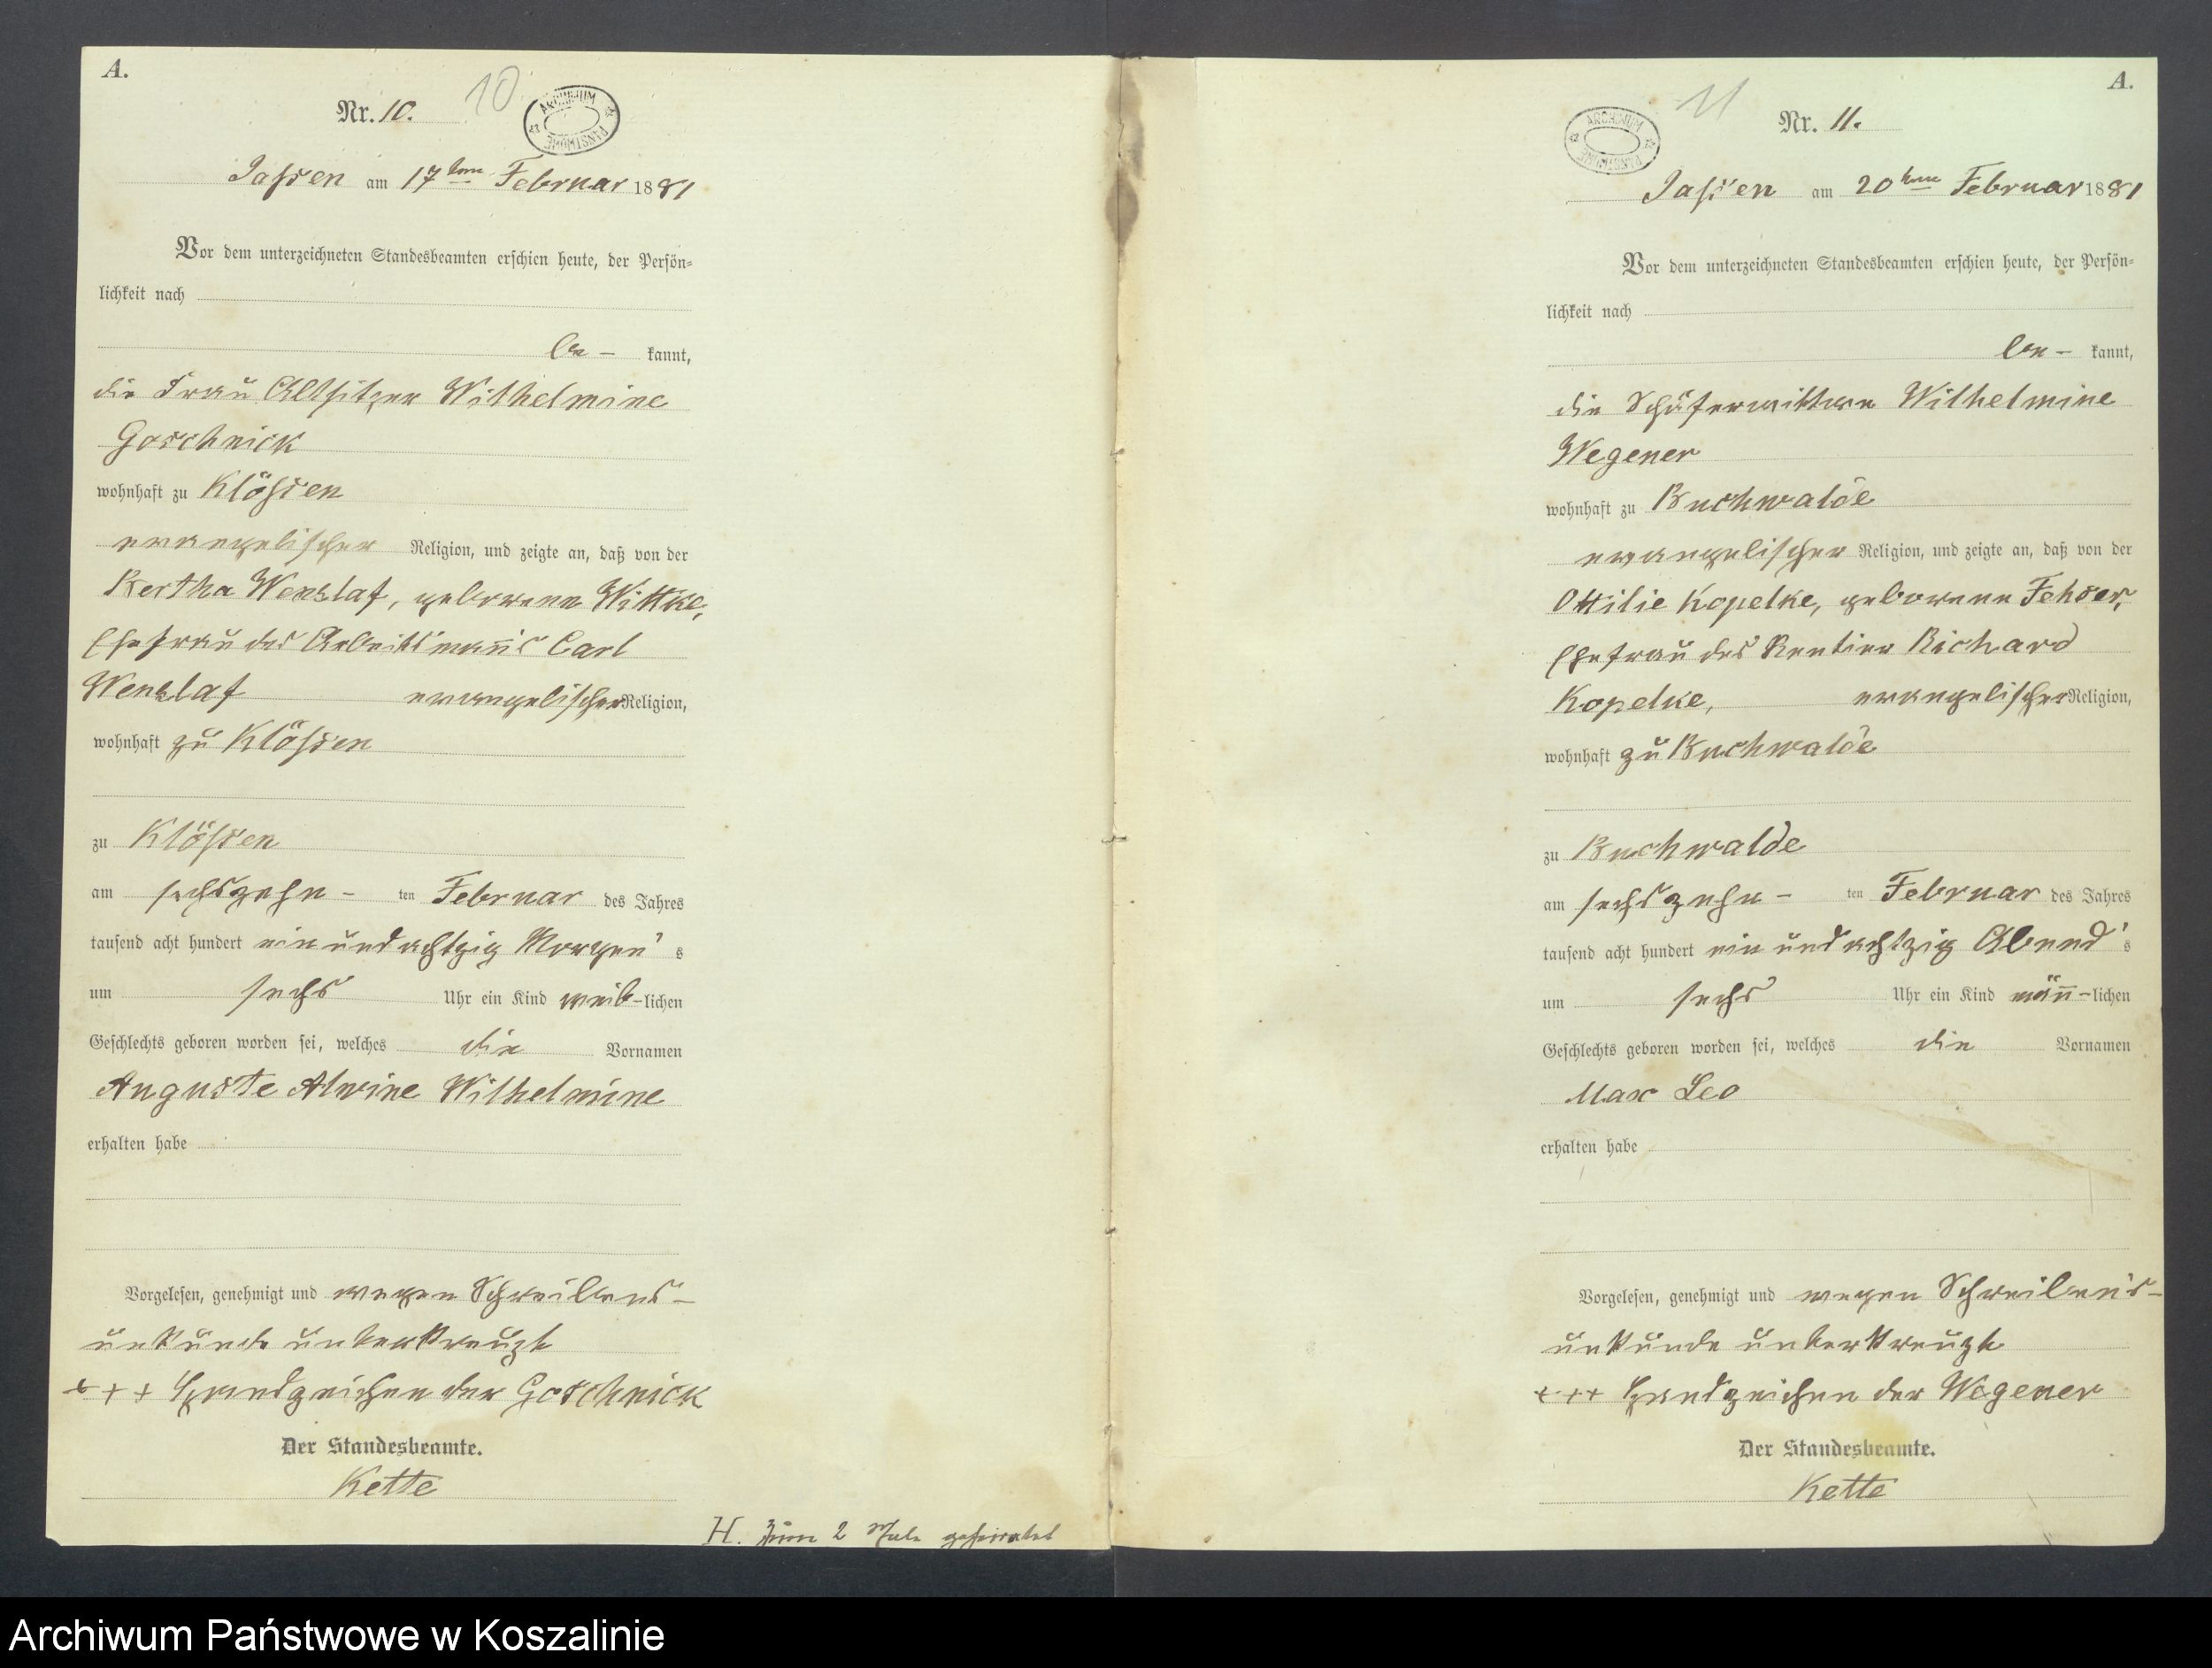 A.
Nr. 10.
10
ARCHIWUM PAŃSTWOWE
Jassen am 17ten Februar 1881
Vor dem unterzeichneten Standesbeamten erschien heute, der Persön-
lichkeit nach
be- kannt,
die Frau Altsitzer Wilhelmine
Goschnick
wohnhaft zu Klössen
evangelischer Religion, und zeigte an, daß von der
Bertha Wenzlaf, geborenen Wittke,
Ehefrau des Arbeitsmann's Carl
Wenzlaf evangelischer Religion,
wohnhaft zu Klössen
zu Klössen
am sechszehn- ten Februar des Jahres
tausend acht hundert ein und achtzig Morgen's
um sechs Uhr ein Kind weib-lichen
Geschlechts geboren worden sei, welches die Vornamen
Auguste Alwine Wilhelmine
erhalten habe
Vorgelesen, genehmigt und wegen Schreibens-
unkunde unterkreuzt
+++ Handzeichen der Goschnick
Der Standesbeamte.
Kette
H. zum 2 Male geheiratet
A.
Nr. 11.
11
ARCHIWUM PAŃSTWOWE
Jassen am 20ten Februar 1881
Vor dem unterzeichneten Standesbeamten erschien heute, der Persön-
lichkeit nach
be- kannt,
die Schäferwittwe Wilhelmine
Wegener
wohnhaft zu Buchwalde
evangelischer Religion, und zeigte an, daß von der
Ottilie Kopelke, geborenen Fehser,
Ehefrau des Rentier Richard
Kopelke, evangelischer Religion,
wohnhaft zu Buchwalde
zu Buchwalde
am sechszehn- ten Februar des Jahres
tausend acht hundert ein und achtzig Abend's
um sechs Uhr ein Kind männ-lichen
Geschlechts geboren worden sei, welches die Vornamen
Max Leo
erhalten habe
Vorgelesen, genehmigt und wegen Schreiben's-
unkunde unterkreuzt
+++ Handzeichen der Wegener
Der Standesbeamte.
Kette
Archiwum Państwowe w Koszalinie